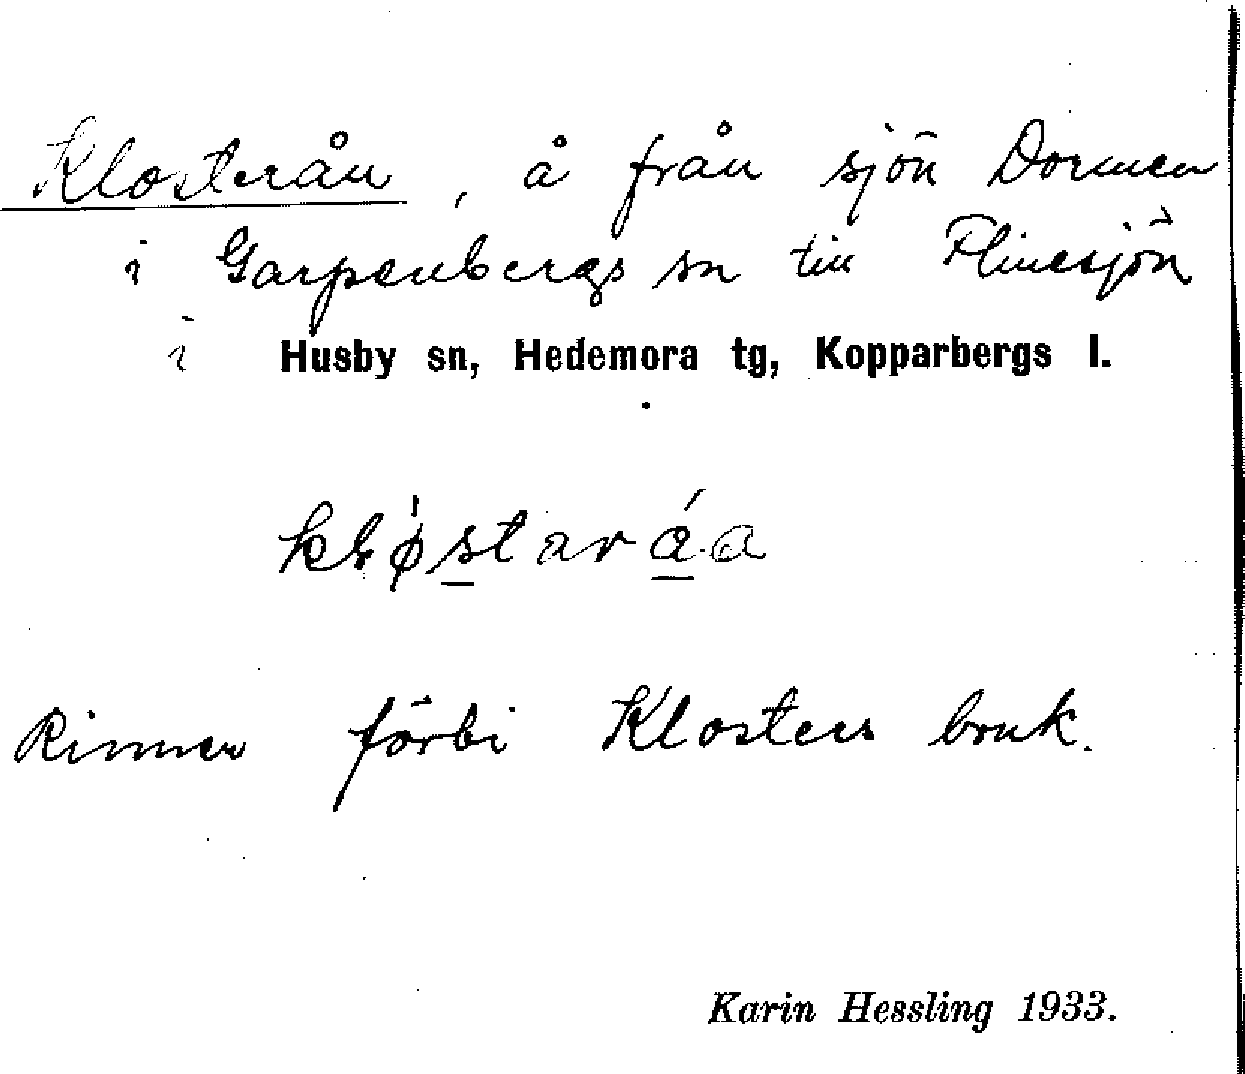 Klosterån, å från sjön Dormen
i Garpenbergs sn till Flinesjön
i Husby sn, Hedemora tg, Kopparbergs l.
Rinner förbi Klosters bruk.
Karin Hessling 1933.